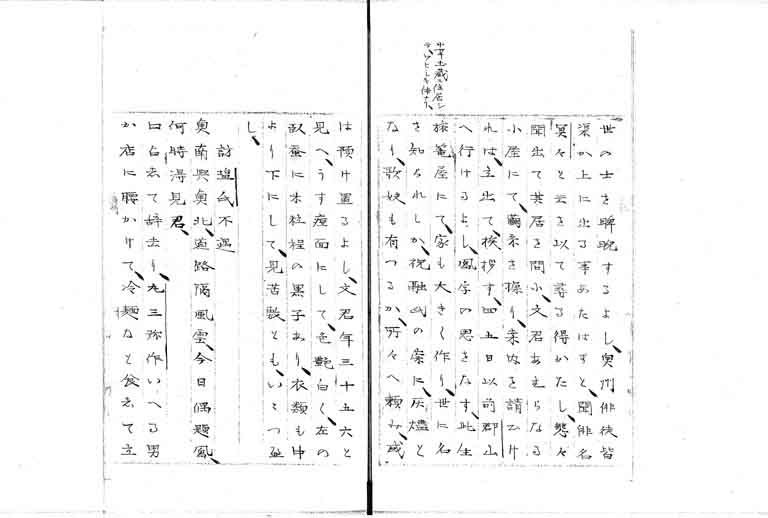 世の士を睥睨するよし、奥州俳徒皆
渠か上に出る事あたはすと、聞俳名
冥々と云を以て尋る得かたし、態々
聞出て其居を問、小文君あえらなる
小屋にて、繭糸を操り、案内を請ひけ
れは、主出て、挨拶す、四五日以前郡山
へ行けるよし、風字の思をなす、此生
旅篭屋にて、家も大きく作り、世に名
を知られしか、祝融氏の家に、灰燼と
なり、歌妓も有つるか、所々へ頼み、或
土蔵に住居し
は預け置るよし、文君年三十五六と
見へ、うす痘面にして、色艶白く、左の
臥蚕に木粒程の黒子あり、衣類も中
より下にして、見苦敷とも、いくつ並
し、
訪盟氏不遇
奥南興奥北、道路隔風雲、今日偶題風、
何時得見君、
口占云て辞去り、九三弥作いへる男
か店に腰かけて、冷麺なと食云て立